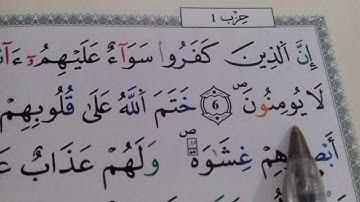 حِزْب 1
إِنَّ اَلذِينَ كَفَرُواْ سَوَآءٌ عَلَيْهِمُۥٓ
لَا يُومِنُونَ 6 خَتَمَ اَللَّهُ عَلَىٰ قُلُوبِهِمْ
غِشَٰوَةٌ وَلَهُمْ عَذَابٌ